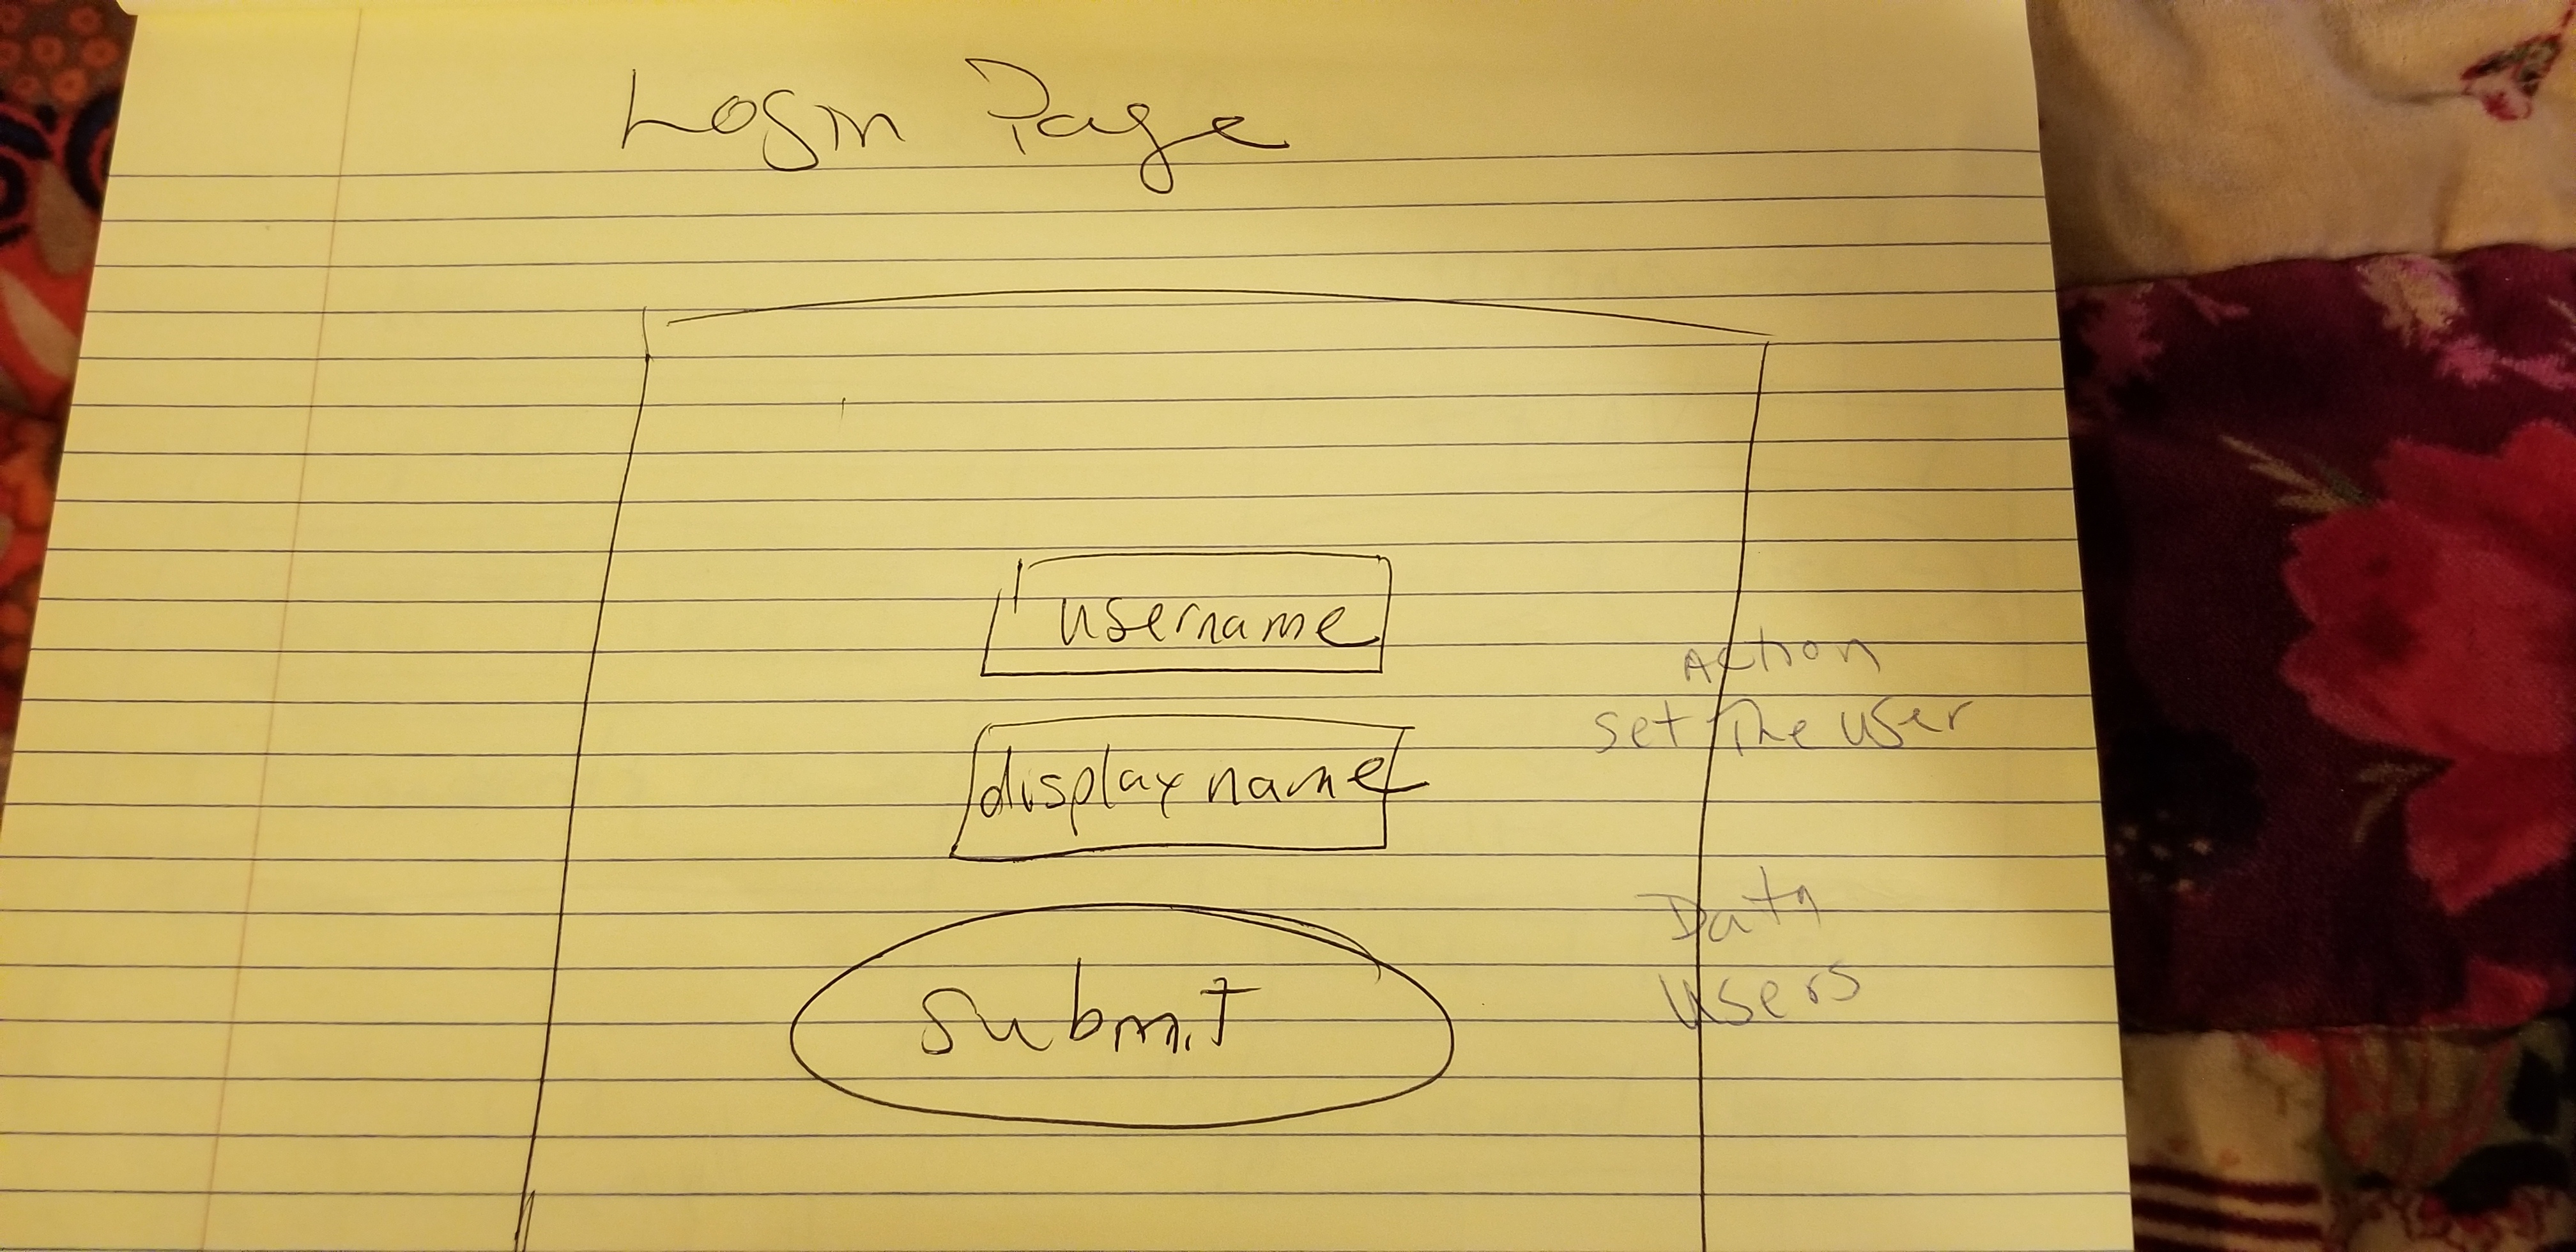 Login Page
username
display name
submit
Action
set the user
Data
users